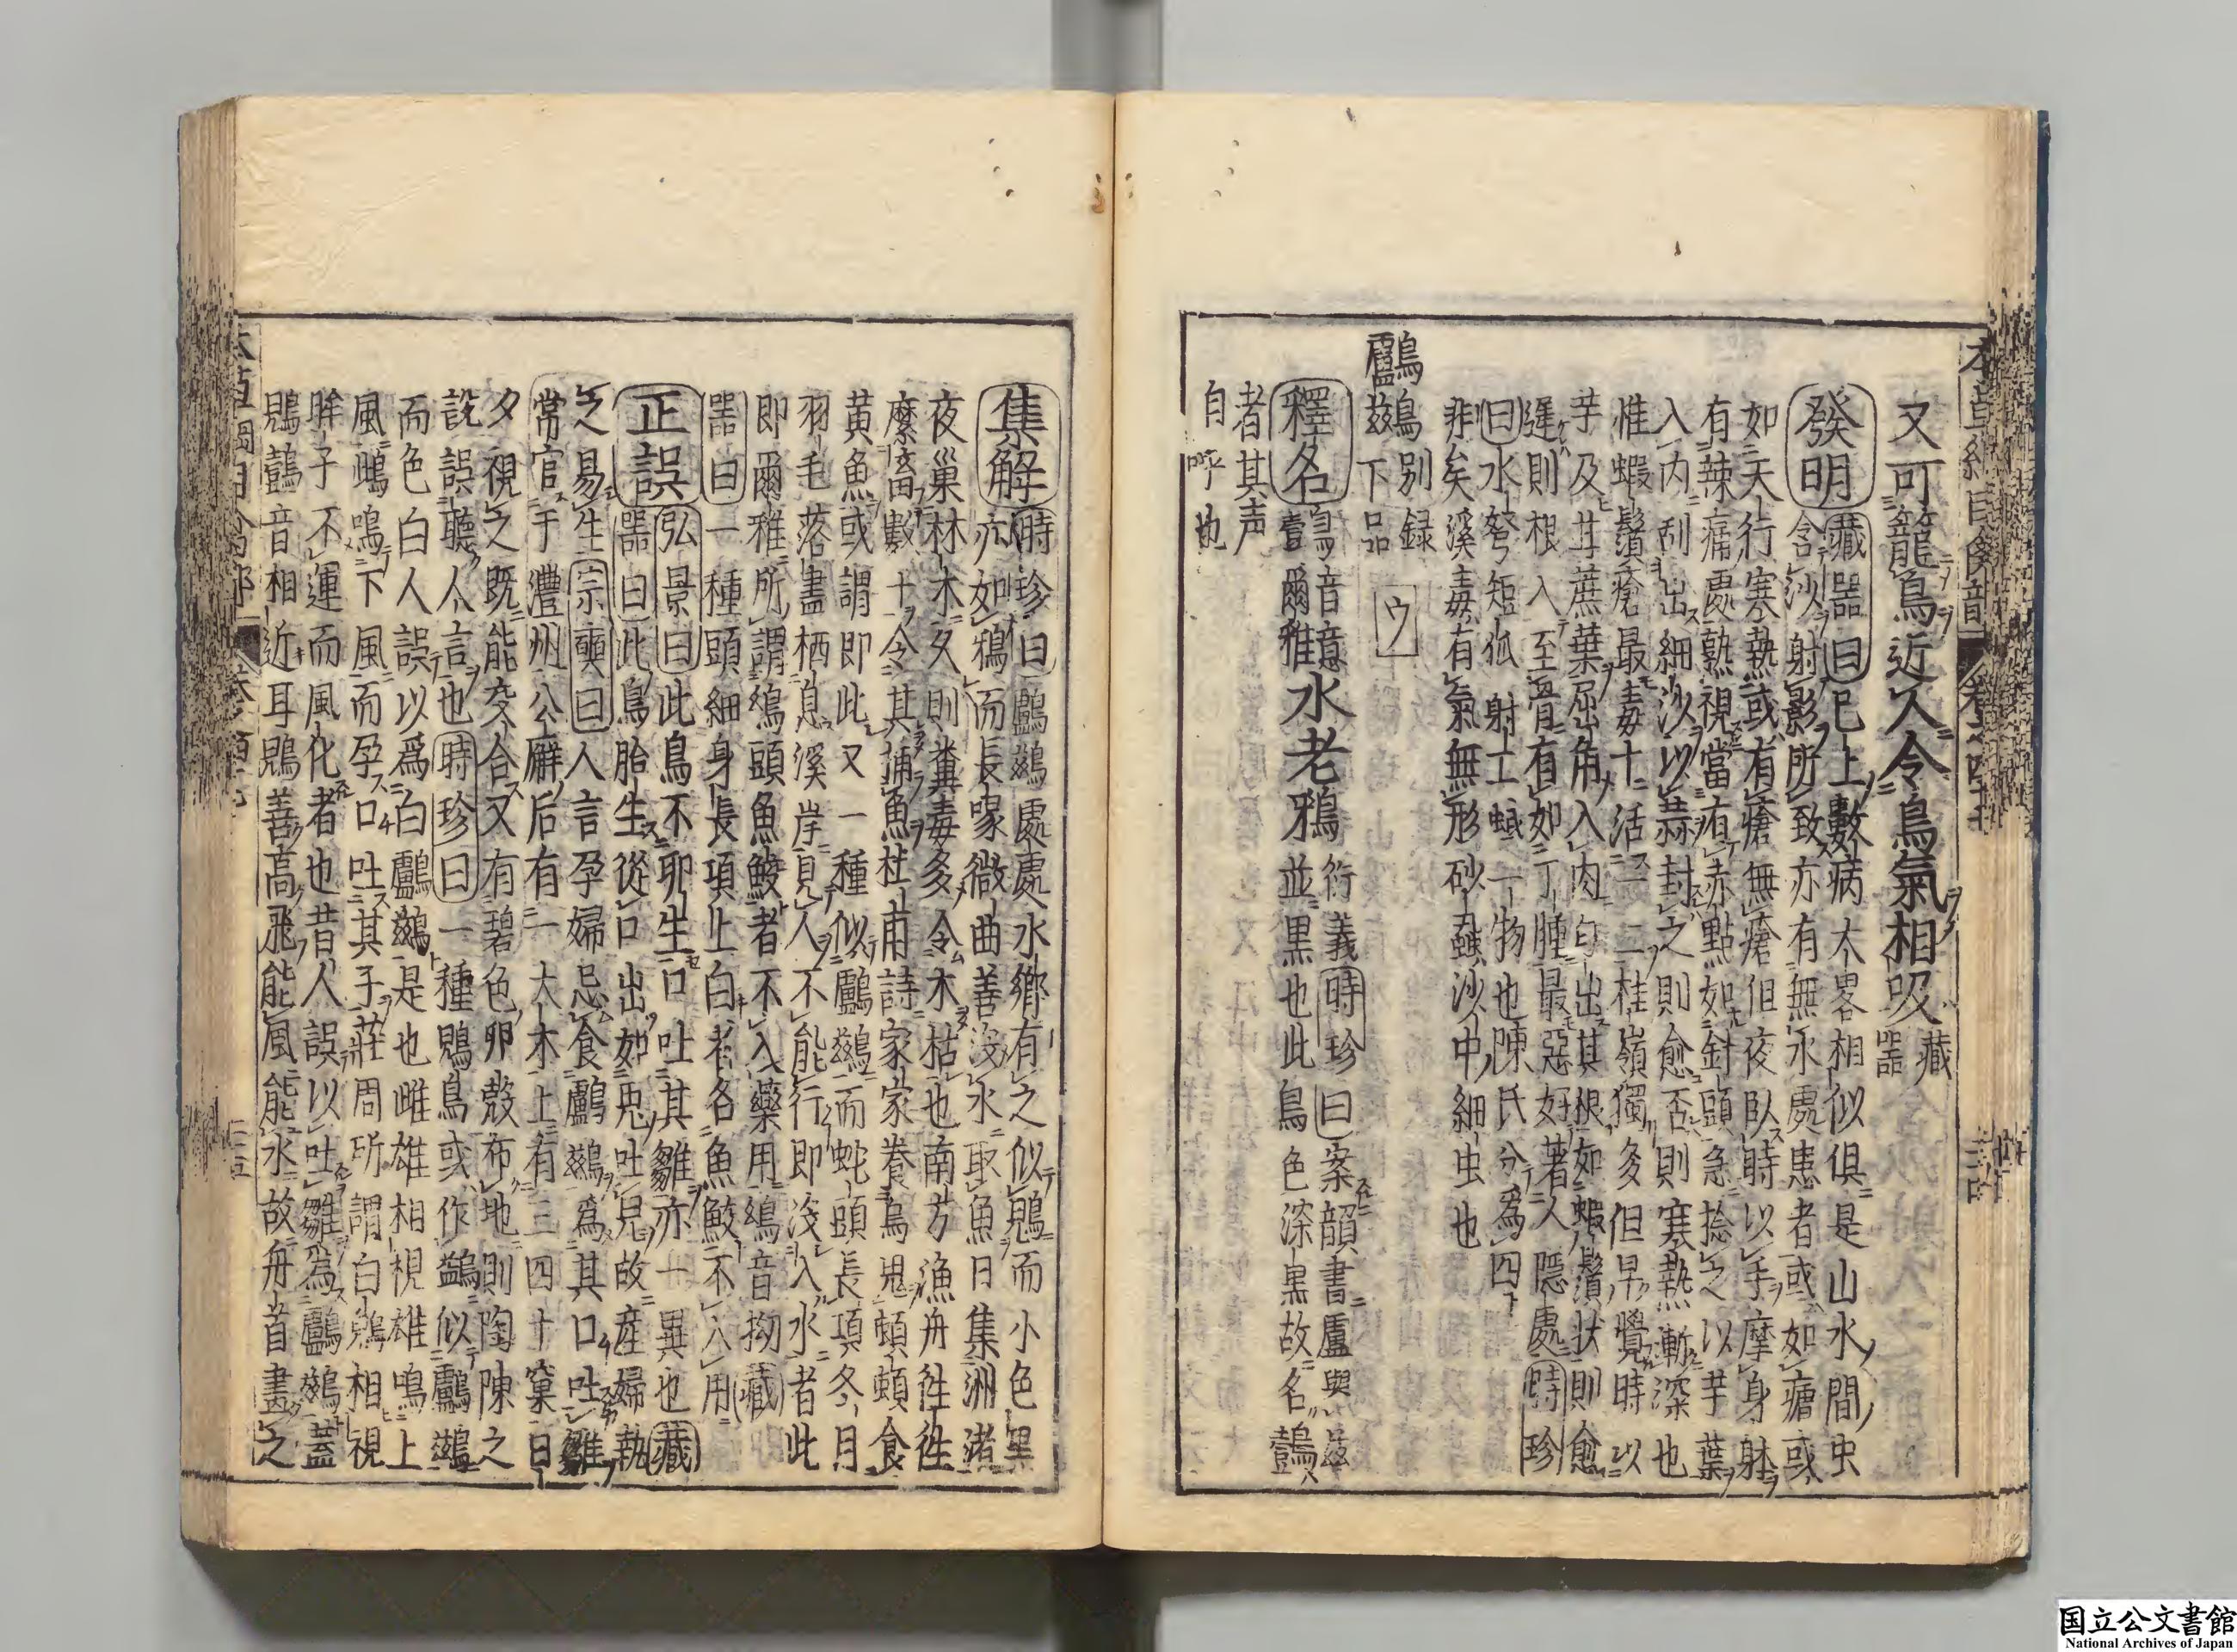 又可籠鳥近人令鳥氣相吸藏器
發明藏器曰已上數病大畧相似俱是山水間虫
含沙射影所致亦有無水處患者或如瘧或
如天行寒熱或有瘡無瘡但夜臥時以手摩身躰
有辣痛處熟視當有赤點如針頭急捻之以芋葉
入内刮出細沙以蒜封之則愈否則寒熱漸深也
惟蝦鬚瘡最毒十活一二桂嶺獨多但早覺時以
芋及甘蔗葉屈角入肉勾出其根如蝦鬚状則愈
遅則根入至骨有如丁腫最惡好著人隱處時珍
曰水弩短狐射工蜮一物也陳氏分爲四
非矣溪毒有氣無形砂蝨沙中細虫也
鸕鷀別録下品 ウ
釋名鷧音意爾雅水老鴉衍義時珍曰案韻書盧與兹
並黒也此鳥色深黒故名鷧
者其声
自呼也
集解時珍曰鸕鷀處處水郷有之似鶂而小色黒
亦如鴉而長喙微曲善没水取魚日集洲渚
夜巢林木久則糞毒多令木枯也南方漁舟徃徃
縻畜數十令其捕魚杜甫詩家家養烏鬼頓頓食
黄魚或謂即此又一種似鸕鷀而蛇頭長項冬月
羽毛落盡栖息溪岸見人不能行即没入水者此
即爾雅所謂鴢頭魚鵁者不入藥用鴢音拗藏
器曰一種頭細身長項上白者名魚鮫不入用
正誤弘景曰此鳥不卵生口吐其雛亦一異也藏
器曰此鳥胎生從口出如兎吐兒故産婦執
之易生宗奭曰人言孕婦忌食鸕鷀爲其口吐雛
常官于澧州公廨后有一大木上有三四十窠日
夕視之既能交合又有碧色卵殻布地則陶陳之
説誤聽人言也時珍曰一種鶂鳥或作鷁似鸕鷀
而色白人誤以爲白鸕鷀是也雌雄相視雄鳴上
風雌鳴下風而孕口吐其子莊周所謂白鶂相視
眸子不運而風化者也昔人誤以吐雛爲鸕鷀蓋
鶂鷧音相近耳鶂善高飛能風能水故舟首畫之
国立公文書館
National Archives of Japan